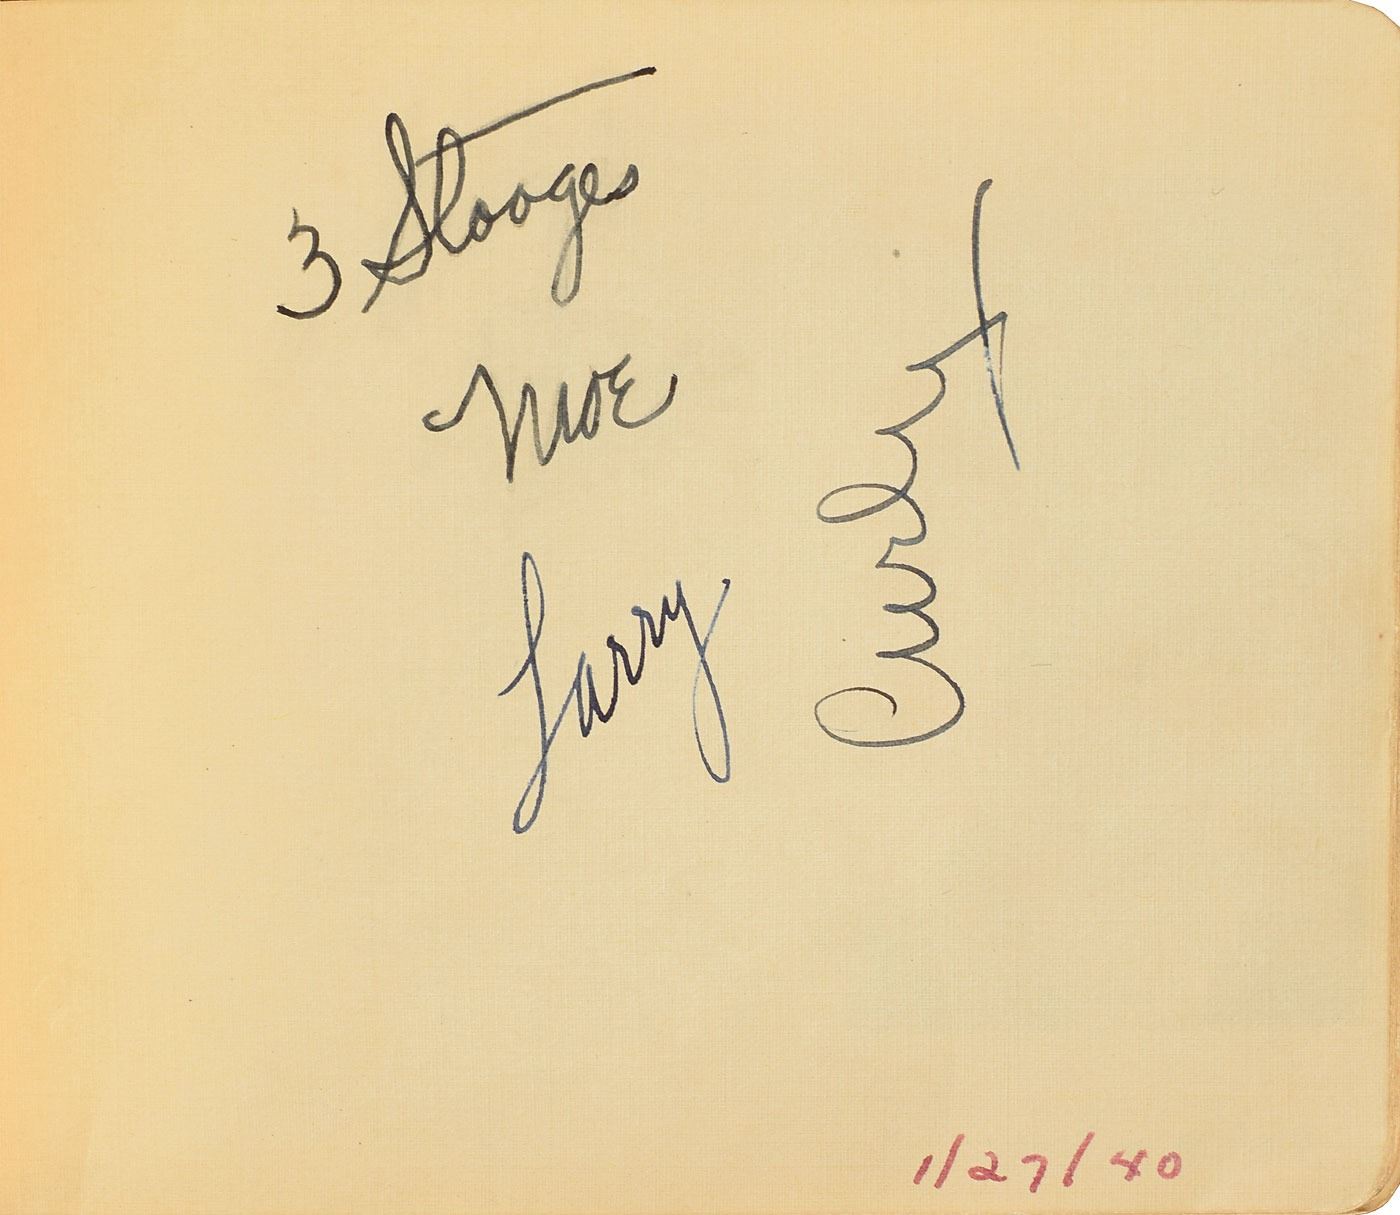 3 Stooges
Moe
Larry
Curly
1/27/40